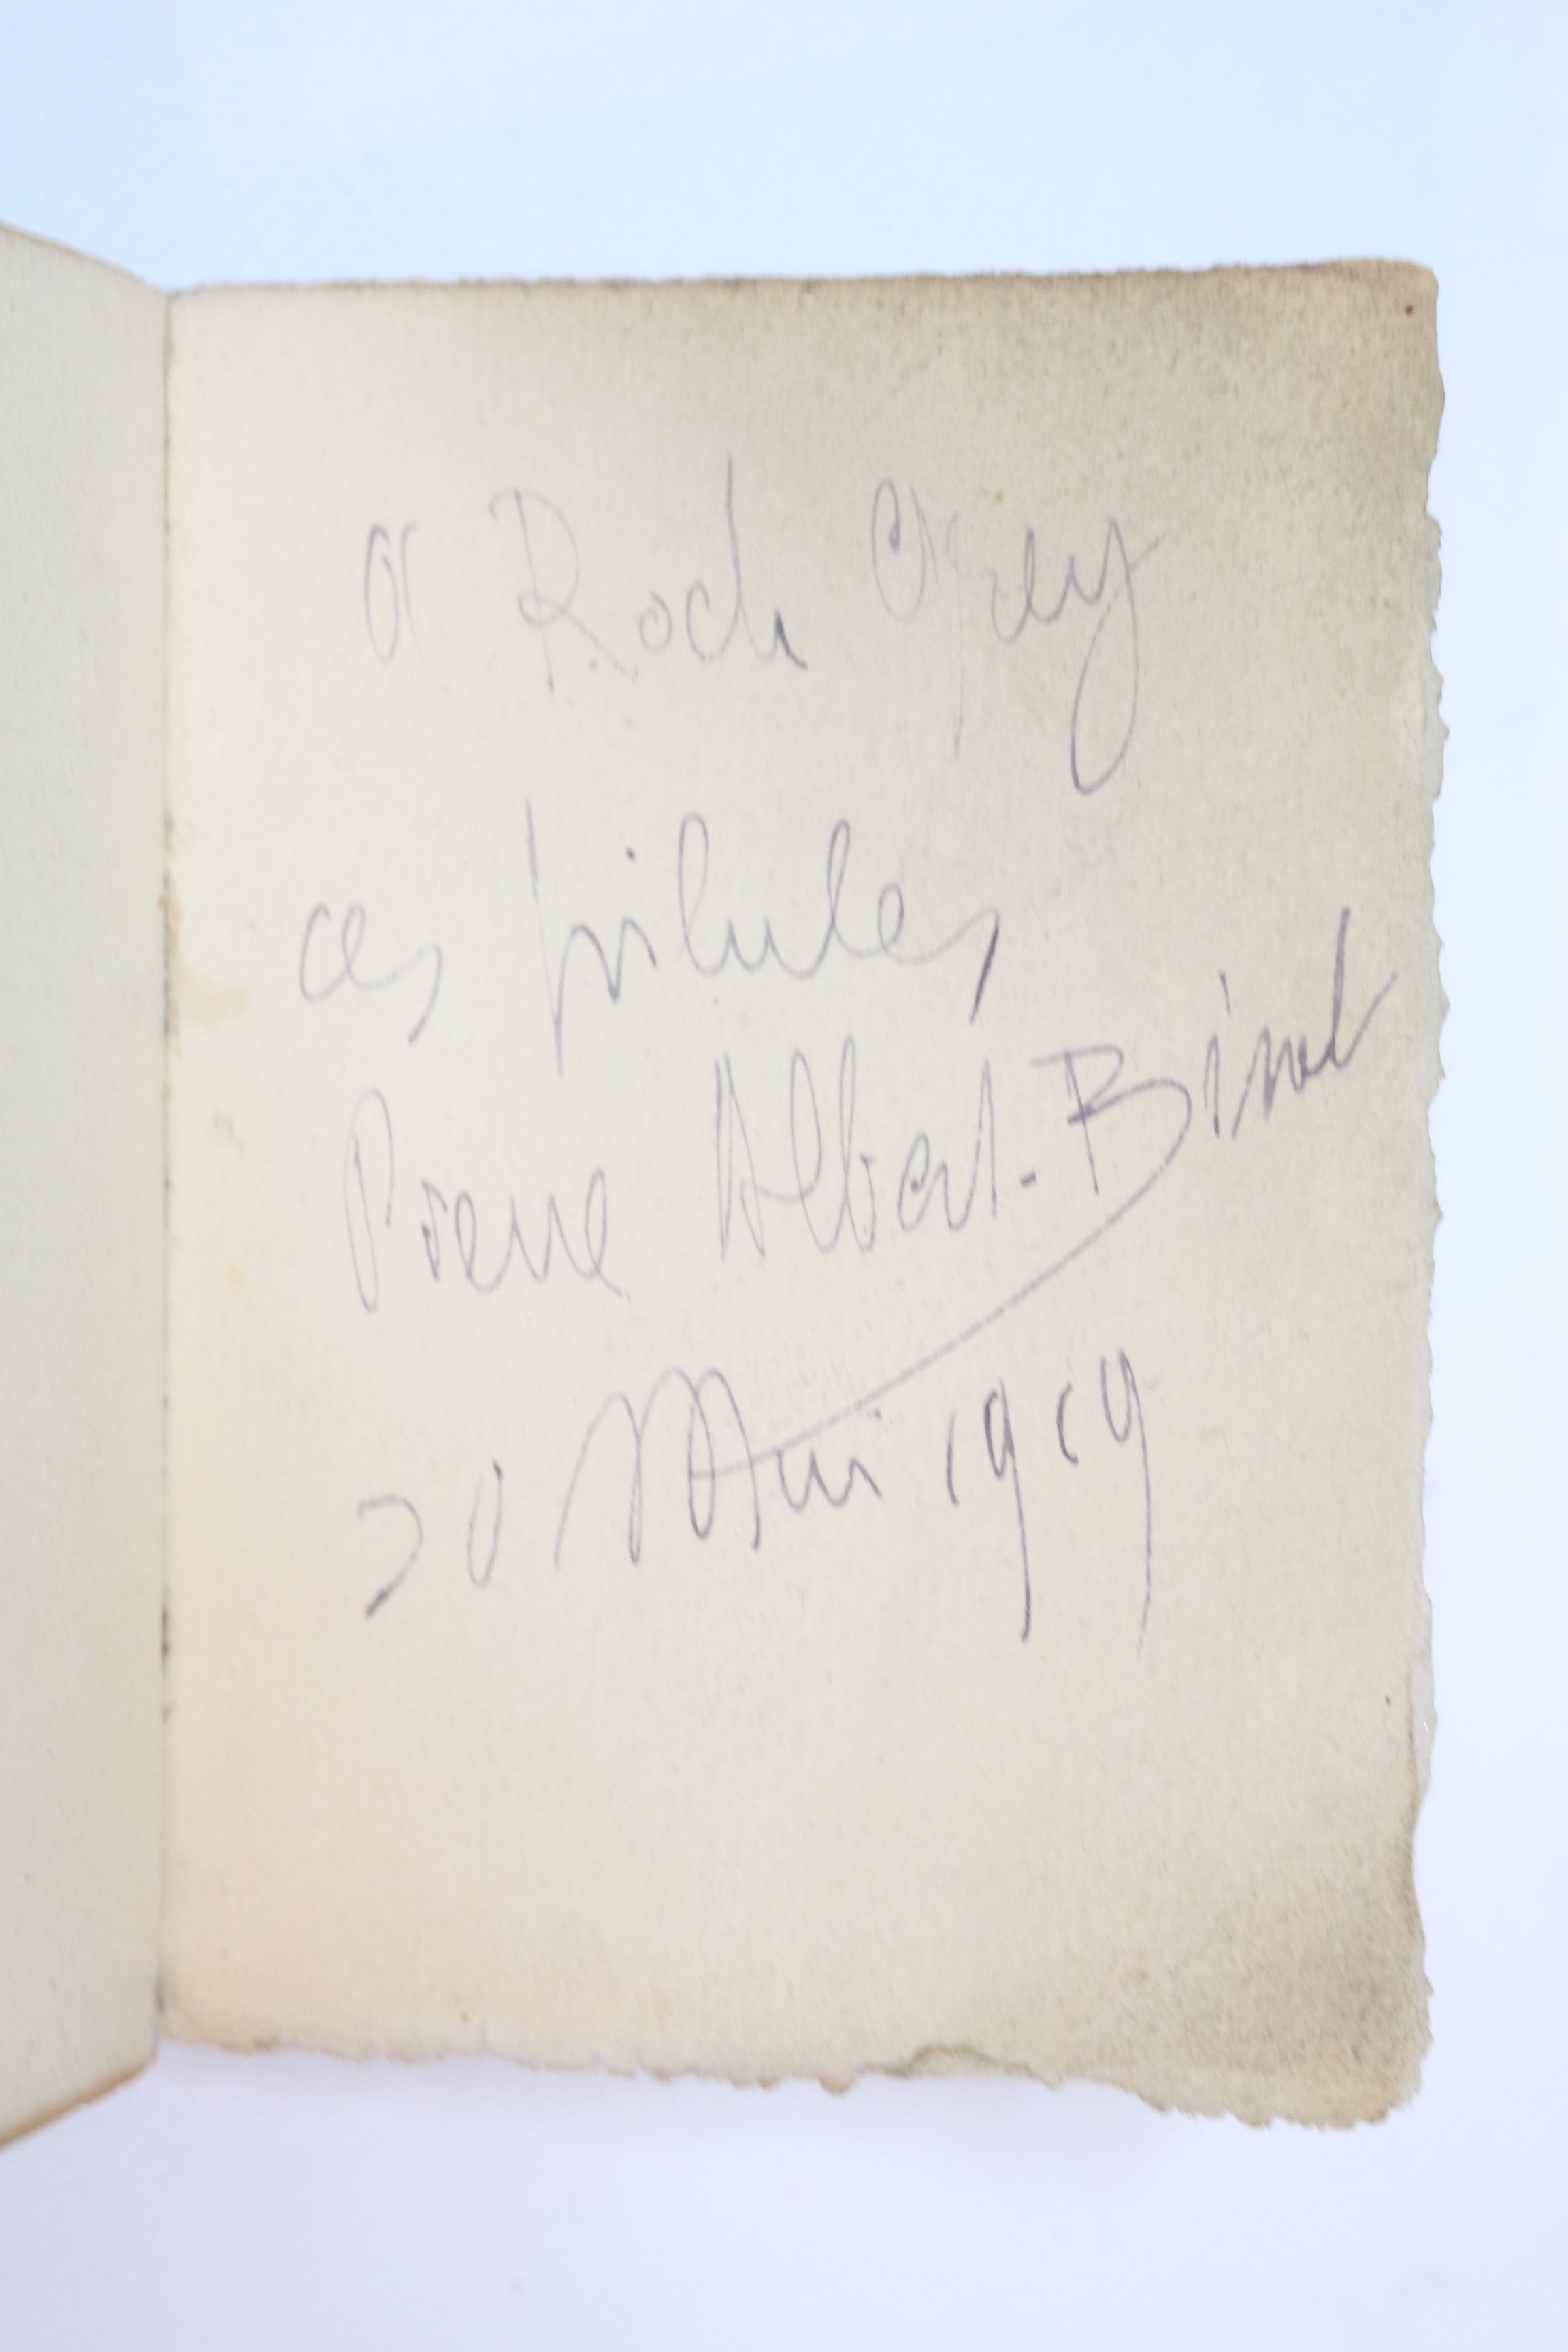 a Roch Grey
ces pilules
Pierre Albert-Birot
20 Mai 1919